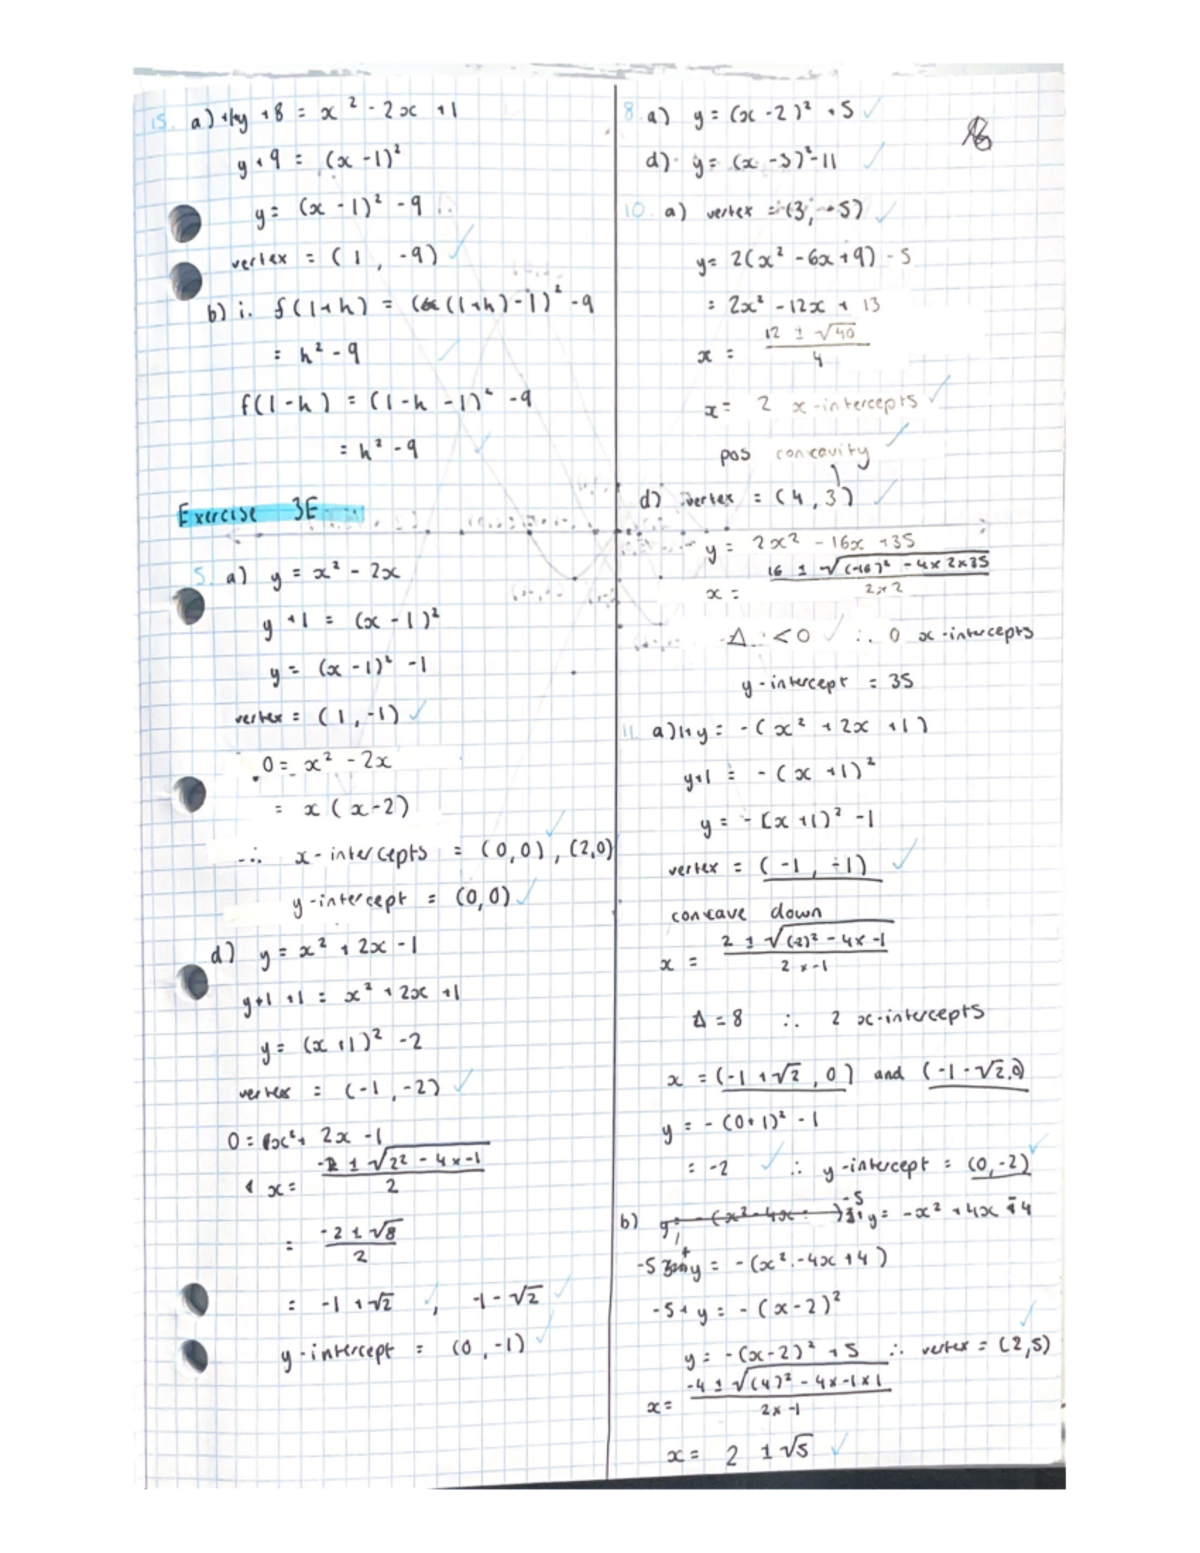 15. a) 1+y +8 = x² - 2x +1
y+9 = (x -1)²
y= (x -1)² -9
vertex = (1, -9)
b) i. f(1+h) = ((1+h)-1)² -9
= h² -9
f(1-h) = (1-h -1)² -9
= h² -9
Exercise 3E
5. a) y = x² - 2x
y +1 = (x -1)²
y = (x -1)² -1
vertex = (1, -1)
0 = x² - 2x
= x(x-2)
∴ x-intercepts = (0,0), (2,0)
y-intercept = (0,0)
d) y = x² + 2x -1
y+1 +1 = x² + 2x +1
y = (x +1)² -2
vertex = (-1, -2)
0 = x² + 2x -1
x = -2 ± √2² - 4x-1 / 2
= -2 ± √8 / 2
= -1 + √2 , -1 - √2
y-intercept = (0, -1)
8. a) y = (x -2)² +5
d) y = (x -3)² -11
10. a) vertex = (3, -5)
y = 2(x² - 6x +9) - 5
= 2x² -12x + 13
x = 12 ± √40 / 4
x = 2 x-intercepts
pos concavity
d) vertex = (4, 3)
y = 2x² - 16x +35
x = 16 ± √(-16)² - 4x2x35 / 2x2
Δ < 0 ∴ 0 x-intercepts
y-intercept = 35
11. a) 1+y = -(x² + 2x +1)
y+1 = -(x +1)²
y = -(x +1)² -1
vertex = (-1, -1)
concave down
x = 2 ± √(-2)² - 4x-1 / 2x-1
Δ = 8 ∴ 2 x-intercepts
x = (-1 + √2, 0) and (-1 - √2, 0)
y = -(0+1)² -1
= -2 ∴ y-intercept = (0, -2)
b) y = -x² + 4x - 4
-5 + y = -(x² - 4x + 4)
-5 + y = -(x-2)²
y = -(x-2)² +5 ∴ vertex = (2,5)
x = -4 ± √(4)² - 4x-1x1 / 2x-1
x = 2 ± √5